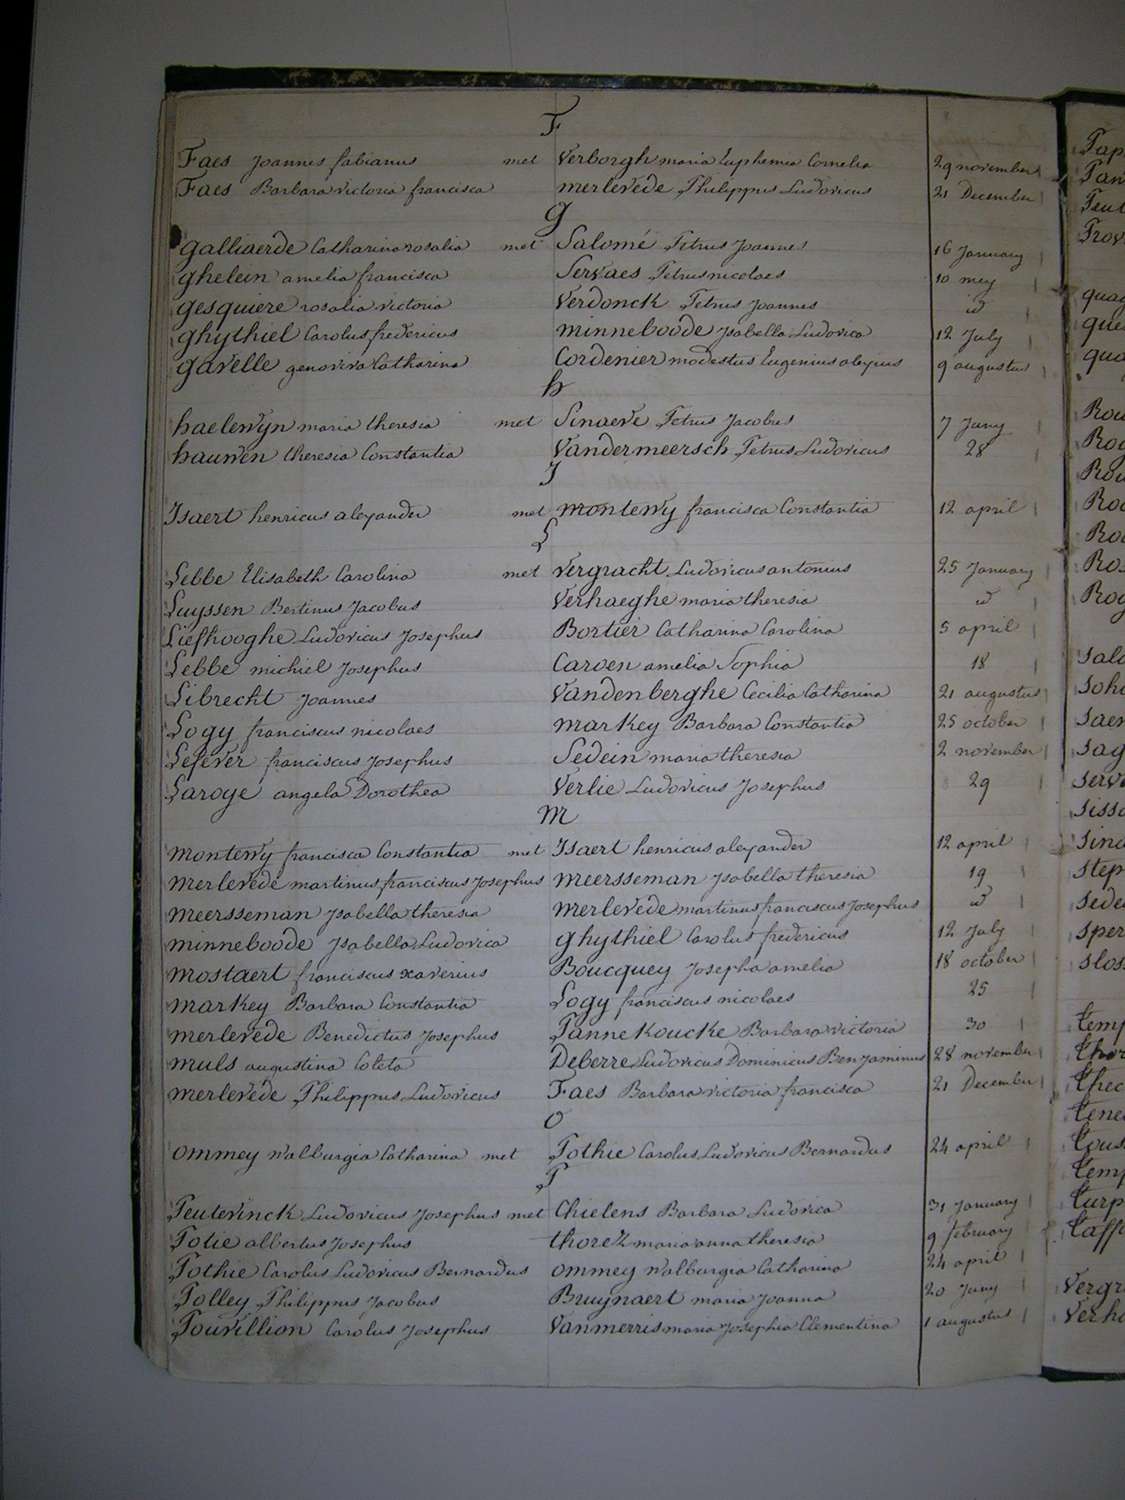 F
Faes Joannes fabianus met Verborgh maria Euphemia Cornelia 29 november
Faes Barbara victoria francisca merlevede Philippus Ludovicus 21 December
g
galliaerde Catharina rosalia met Salomé Petrus Joannes 16 January
ghelein amelia francisca Servaes Petrus nicolaes 10 mey
gesquiere rosalia victoria Verdonck Petrus Joannes id
ghythiel Carolus fredericus minneboode Isabella Ludovica 12 July
gavelle genoviva Catharina Cordenier modestus Eugenius alexius 9 augustus
h
haelewyn maria theresia met Sinaeve Petrus Jacobus 7 Juny
hauwen theresia Constantia Vandermeersch Petrus Ludovicus 28
I
Isaert henricus alexander met montewy francisca Constantia 12 april
L
Lebbe Elisabeth Carolina met vergracht Ludovicus antonius 25 January
Luyssen Bertinus Jacobus Verhaeghe maria theresia id
Liefhooghe Ludovicus Josephus Bortier Catharina Carolina 5 april
Lebbe michiel Josephus Caroen amelia Sophia 18
Librecht Joannes Vandenberghe Cecilia Catharina 21 augustus
Logy franciscus nicolaes markey Barbara Constantia 25 october
Lefever franciscus Josephus Sedein maria theresia 2 november
Laroye angela Dorothea Verlie Ludovicus Josephus 29
M
montewy francisca Constantia met Isaert henricus alexander 12 april
merlevede martinus franciscus Josephus meersseman Isabella theresia 19
meersseman Isabella theresia merlevede martinus franciscus Josephus id
minneboode Isabella Ludovica ghythiel Carolus fredericus 12 July
mostaert franciscus xaverius Boucquey Josepha amelia 18 october
markey Barbara Constantia Logy franciscus nicolaes 25
merlevede Benedictus Josephus Pannekoucke Barbara victoria 30
muls augustina Coleta Deberre Ludovicus Dominicus Benjaminus 28 november
merlevede Philippus Ludovicus Faes Barbara victoria francisca 21 December
O
ommey walburgia Catharina met Pothie Carolus Ludovicus Bernardus 24 april
P
Peutevinck Ludovicus Josephus met Chielens Barbara Ludovica 31 January
Potie albertus Josephus thorez maria anna theresia 9 february
Pothie Carolus Ludovicus Bernardus ommey walburgia Catharina 24 april
Polley Philippus Jacobus Bruynaert maria Joanna 20 Juny
Pouvillion Carolus Josephus Vanmerris maria Josephia Clementina 1 augustus